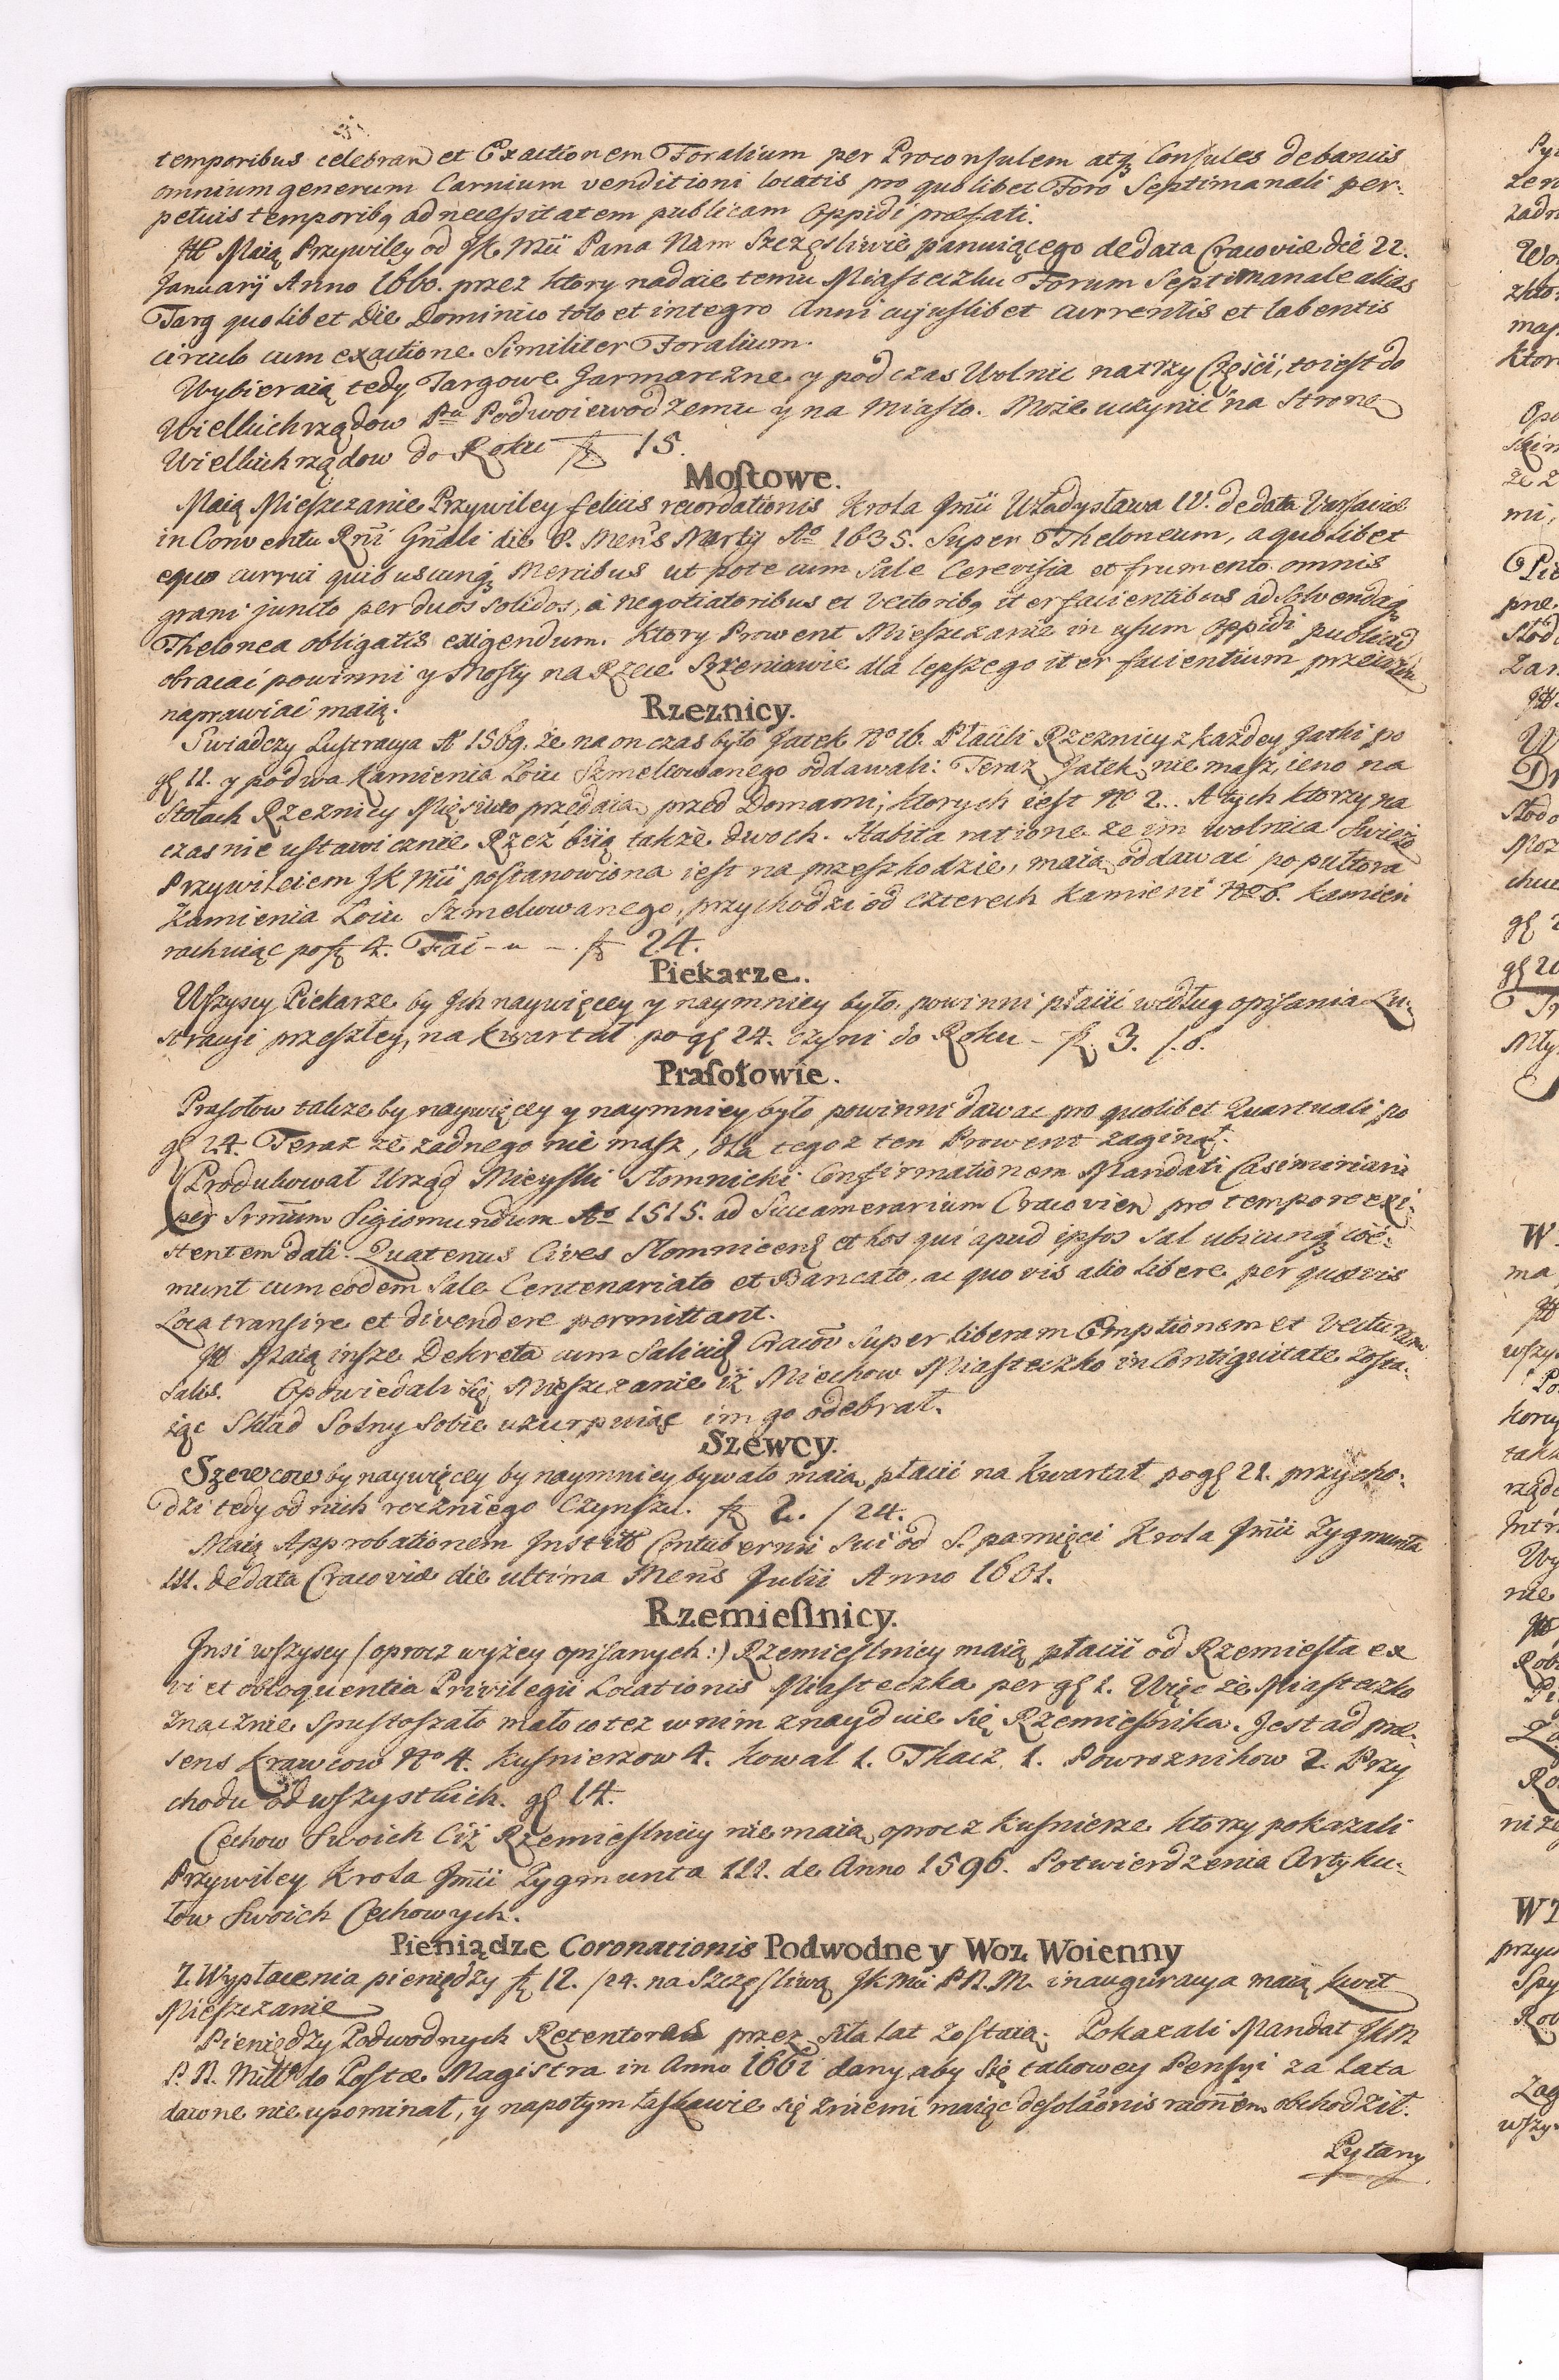 temporibus celebrand et Exactionem Foralium per Proconsulem atq Consules de bancis
omnium generum Carnium venditioni locatis pro quolibet Foro Septimanali per-
petuis temporibq ad necessitatem publicam Oppidi præfati.
Itt Maią Przywiley od JK Mći Pana Nam Szczęsliwie panuiącego de data Cracoviæ die 22.
Januarij Anno 1660. przez ktory nadaie temu Miasteczku Forum Septimanale alias
Targ quolibet Die Dominico toto et integro Anni cujuslibet currentis et labentis
circulo cum exactione Similiter Foralium.
Wybieraią tedy Targowe Jarmarczne y pod czas Wolnic na trzy Części, to iest do
Wielkichrządow Pu Podwoiewodzemu y na Miasto. Może uczynić na Stronę
Wielkichrządow do Roku f 15.
Mostowe.
Maią Mieszczanie Przywiley felicis recordationis Krola Jmći Władysława IV. de data Varsaviæ
in Conventu Rni Gnali die 8. Mens Martij Ao 1635. Super Theloneum, a quolibet
equo currui quibuscunq Mercibus ut pote cum Sale Cerevisia et frumento omnis
grani juncto per duos solidos, a negotiatoribus et Vectoribq iter facientibus ad solvenda
Thelonea obligatis exigendum. Ktory Prowent Mieszczanie in usum oppidi publicum
obracać powinni y Mosty na Rzece Szreniawie dla lepszego iter facientium przeiazdu
naprawiać maią.
Rzeznicy.
Swiadczy Lustracya Ao 1569. że na on czas było Jatek No 16. Płacili Rzeznicy z każdey Jatki po
gł 11. y po dwa Kamienia Łoiu Szmelcowanego oddawali: Teraz Jatek nie masz, ieno na
Stołach Rzeznicy Mięsiwo przedaią przed Domami, ktorych iest No 2. A tych ktorzy na
czas nie ustawicznie Rzez biią także dwoch. Habita ratione ze im wolnica Swieżo
Przywileiem JK Mći postanowiona iest na przeszkodzie, maią oddawać po pułtora
Kamienia Łoiu Szmelcowanego, przychodzi od czterech Kamieni No 6. Kamień
rachuiąc po f 4. Fać - u - f 24.
Piekarze.
Wszyscy Piekarze by Jch naywięcey y naymniey było powinni płacić według opisania Lu-
stracyi przeszłey, na Kwartał po gł 24. czyni do Roku - f 3. /.6.
Prasołowie.
Prasołow także by naywięcey y naymniey było powinni dawac pro quolibet Quartuali po
gł 24. Teraz że żadnego nie masz, dla tegoz ten Prowent zaginął.
Produkował Urząd Mieyski Słomnicki Confirmationem Mandati Casimiriani
per Srmum Sigismundum Ao 1515. ad Succamerarium Cracovien pro tempore exi-
stentem dati. Quatenus Cives Słomnicens et hos qui apud ipsos Sal ubicunq coe-
munt cum eodem Sale Centenariato et Bancato, ac quovis alio libere per quævis
Loca transire et divendere permittant.
Itt Maią insze Dekreta cum Salicid Cracov Super liberam Emptionem et Vecturam
Salis. Opowiedali się Mieszczanie iż Miechow Miasteczko in Contiguitate zosta-
iąc Skład Solny Sobie uzurpuiąc im go odebrał.
Szewcy.
Szewcow by naywięcey by naymniey bywało maią płacić na Kwartał po gł 21. przycho-
dzi tedy od nich roczniego Czynszu. f 2. /24.
Maią Approbationem Instit Contubernii Sui od S. pamięci Krola Jmći Zygmunta
III. de data Cracoviæ die ultima Mens Julii Anno 1601.
Rzemiesłnicy.
Jnsi wszyscy (oprocz wyżey opisanych:) Rzemieslnicy maią płacić od Rzemiesła ex
vi et obloquentia Privilegii Locationis Miasteczka per gł 1. Więc że Miasteczko
znacznie Spustoszało mało co też w nim znayduie się Rzemieśnika. Jest ad præ-
sens Krawcow No 4. Kusnierzow 4. Kowal 1. Tkacz 1. Powroznikow 2. Przy
chodu od wszystkich. gł 14.
Cechow Swoich Ciż Rzemieslnicy nie maią oprocz Kusnierze ktorzy pokazali
Przywiley Krola Jmći Zygmunta III. de Anno 1596. Potwierdzenia Artyku-
łow Swoich Cechowych.
Pieniądze Coronationis Podwodne y Woz Woienny
Z Wypłacenia pieniędzy f 12. /24. na Szczęsliwą JK Mći P.N.M. inauguracya maią Kwit
Mieszczanie
Pieniędzy Podwodnych Retentores przez siła lat zostaią. Pokazali Mandat JKM
P. N. Mittt do Postæ Magistra in Anno 1661 dany, aby się takowey Pensyi za Lata
dawne nie upominał, y napotym łaskawie się zniemi maiąc desolaonis raonem obchodził.
Pytany